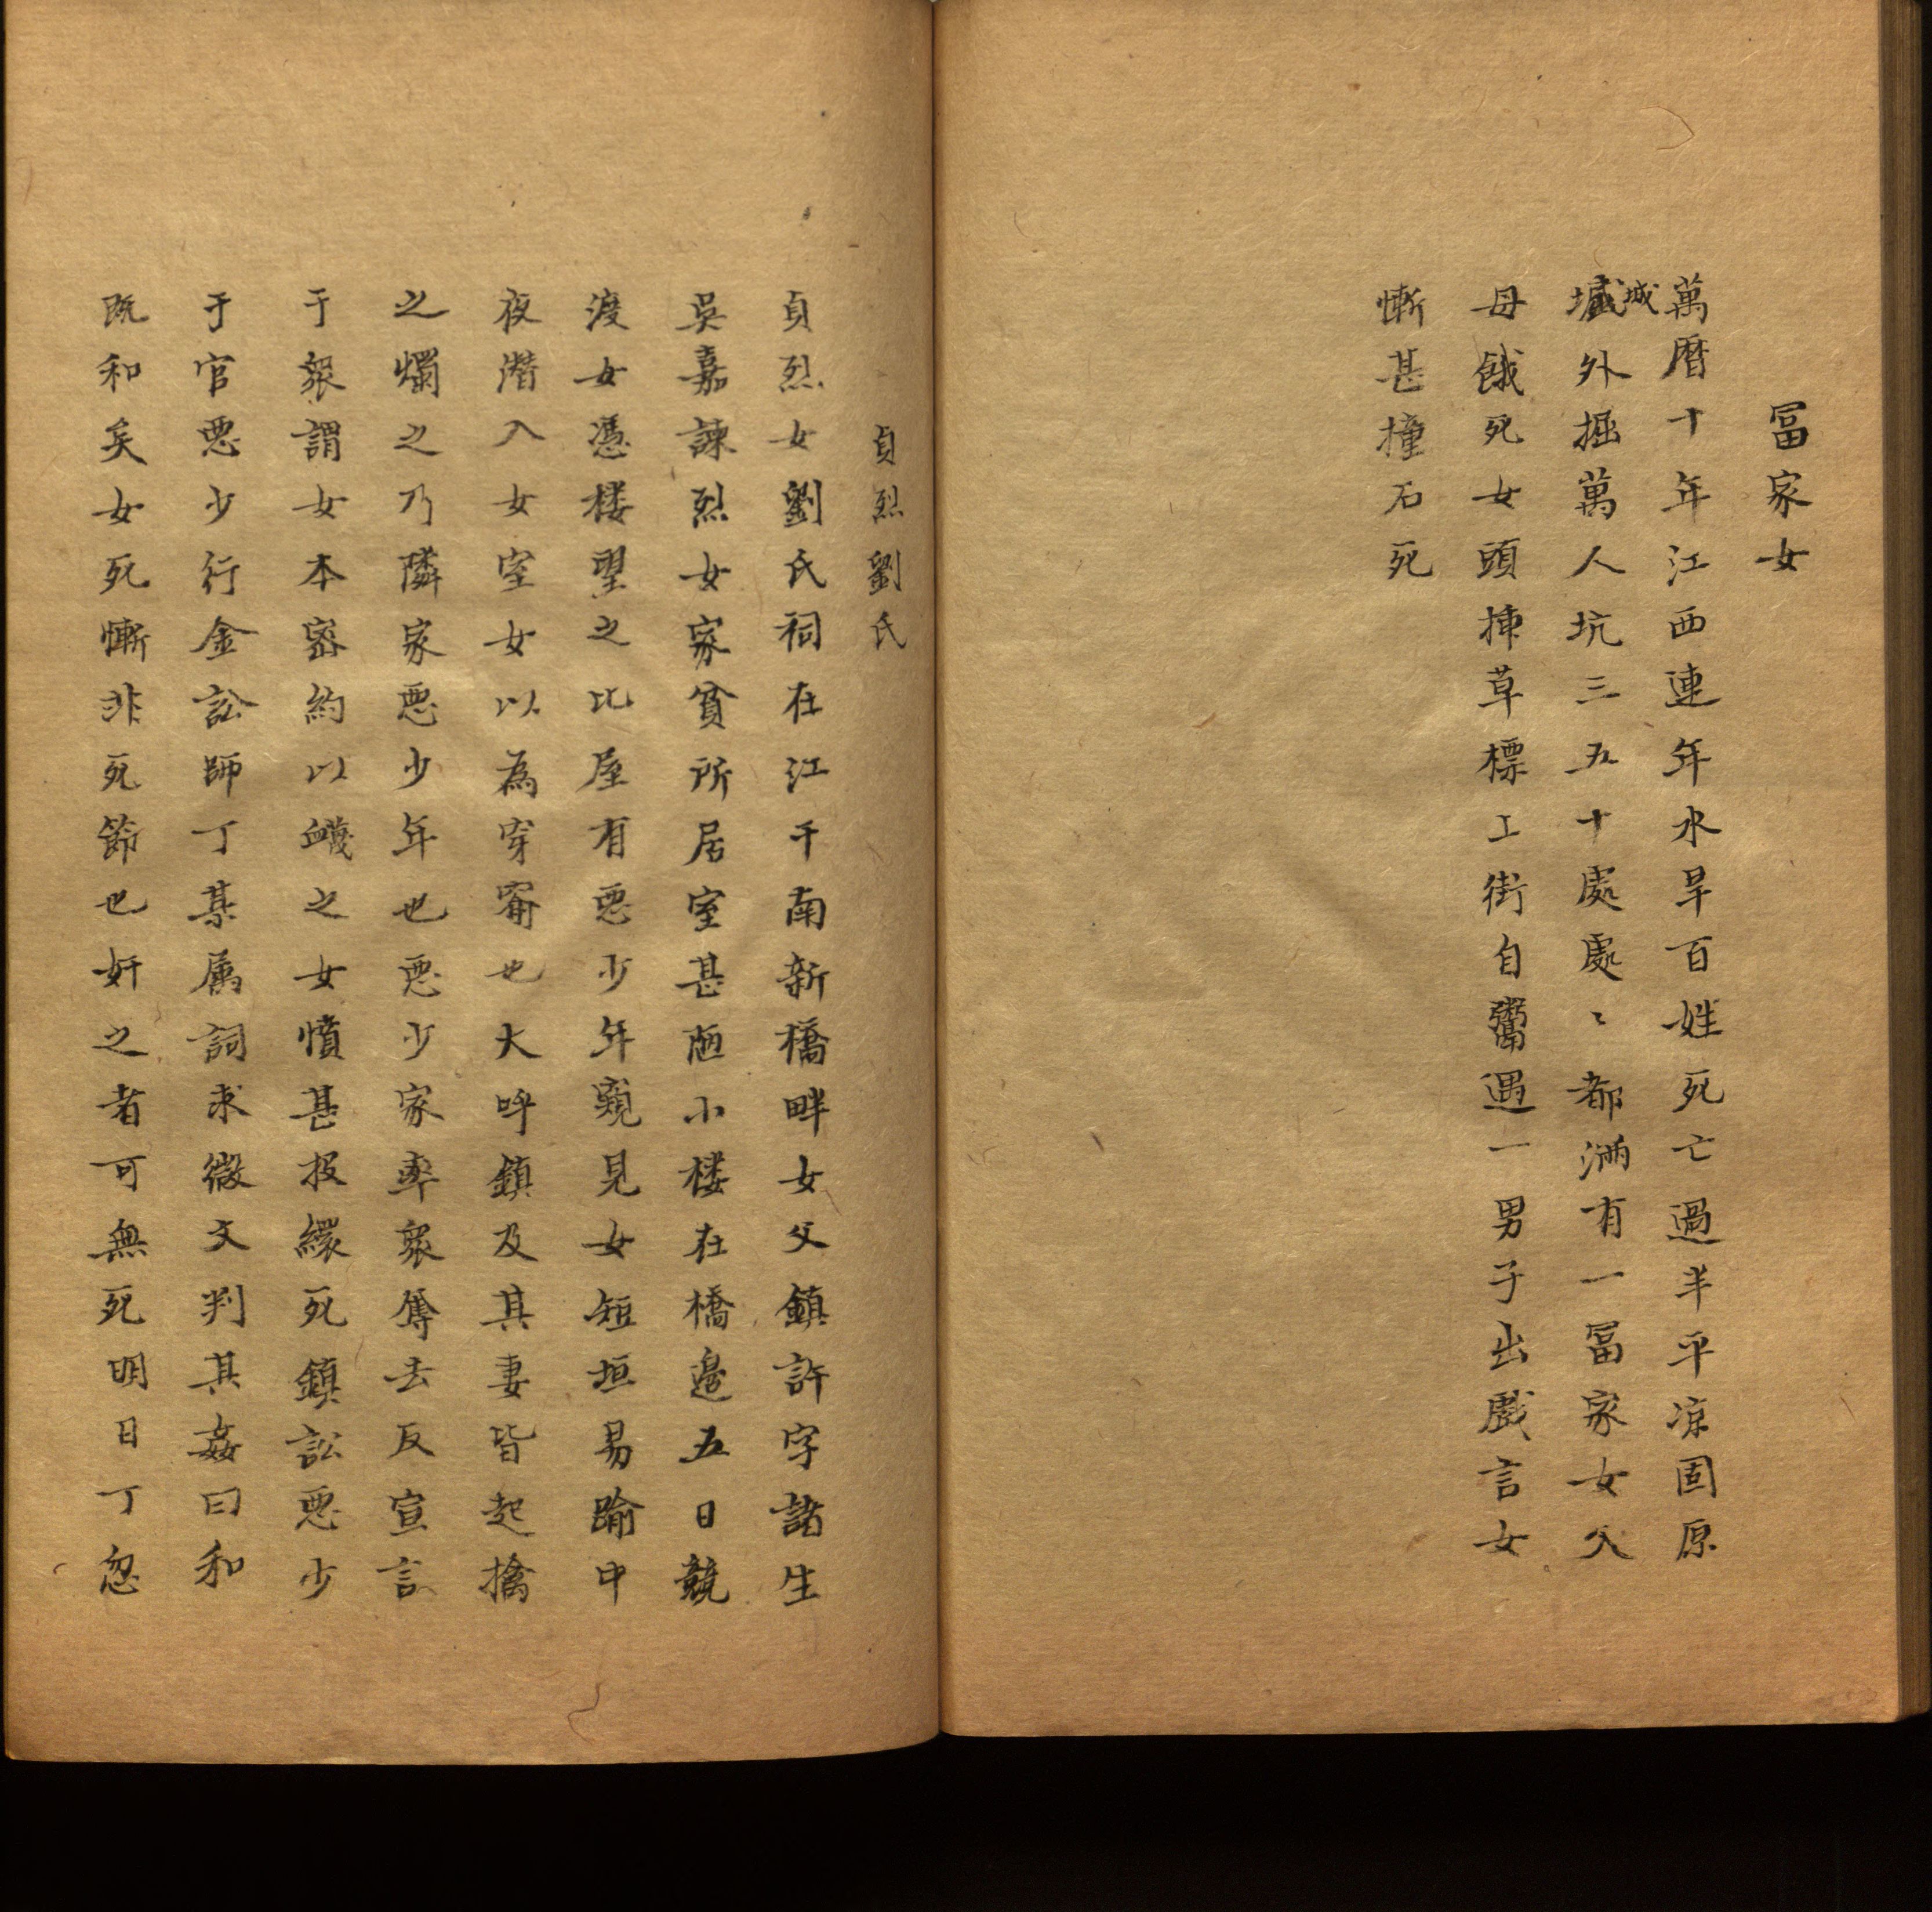 冨家女
萬曆十年江西連年水旱百姓死亡過半平凉固原
城
外掘萬人坑三五十處處〻都滿有一冨家女父
母餓死女頭揷草標上街自鬻遇一男子出戲言女
慚甚撞石死
貞烈劉氏
貞烈女劉氏祠在江干南新橋畔女父鎮許字諸生
吳嘉諫烈女家貧所居室甚陋小楼在橋邊五日競
渡女憑楼望之比屋有惡少年窺見女短垣易踰中
夜潜入女室女以為穿窬也大呼鎮及其妻皆起擒
之爛之乃隣家惡少年也惡少家率衆奪去反宣言
于衆謂女本密約以衊之女憤甚投繯死鎮訟惡少
于官惡少行金訟師丁某属詞求微文判其姦曰和
既和矣女死慚非死節也奸之者可無死明日丁忽